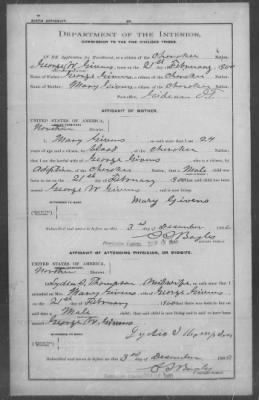 BIRTH AFFIDAVIT.
DEPARTMENT OF THE INTERIOR,
COMMISSION TO THE FIVE CIVILIZED TRIBES.
IN RE Application for Enrollment, as a citizen of the Cherokee Nation,
of George W. Givens, born on the 21st day of February, 190
Name of Father: George Givens, a citizen of the Cherokee Nation.
Name of Mother: Mary Givens, a citizen of the Cherokee Nation.
Post-office
AFFIDAVIT OF MOTHER.
UNITED STATES OF AMERICA,
Northern District.
I, Mary Givens, on oath state that I am 24
years of age and a citizen, by blood, of the Cherokee Nation;
that I am the lawful wife of George Givens, who is a citizen, by
Adoption of the Cherokee Nation; that a Male child
was born to me on the 21st day of February, 190
George W Givens, and is now living.
Mary Givens
WITNESSES TO MARK:
Subscribed and sworn to before me this 3rd day of December, 190
AFFIDAVIT OF ATTENDING PHYSICIAN, OR MIDWIFE.
UNITED STATES OF AMERICA,
Northern District.
I, Lydia J. Thompson, a Midwife, on oath state that I
attended on Mrs. Mary Givens, wife of George Givens
on the 21st day of February, 190 ; that there was born to her on said date a
Male child; that said child is now living and is said to have been
named George W. Givens
Lydia J Thompson
WITNESSES TO MARK:
Subscribed and sworn to before me this 3rd day of December, 190